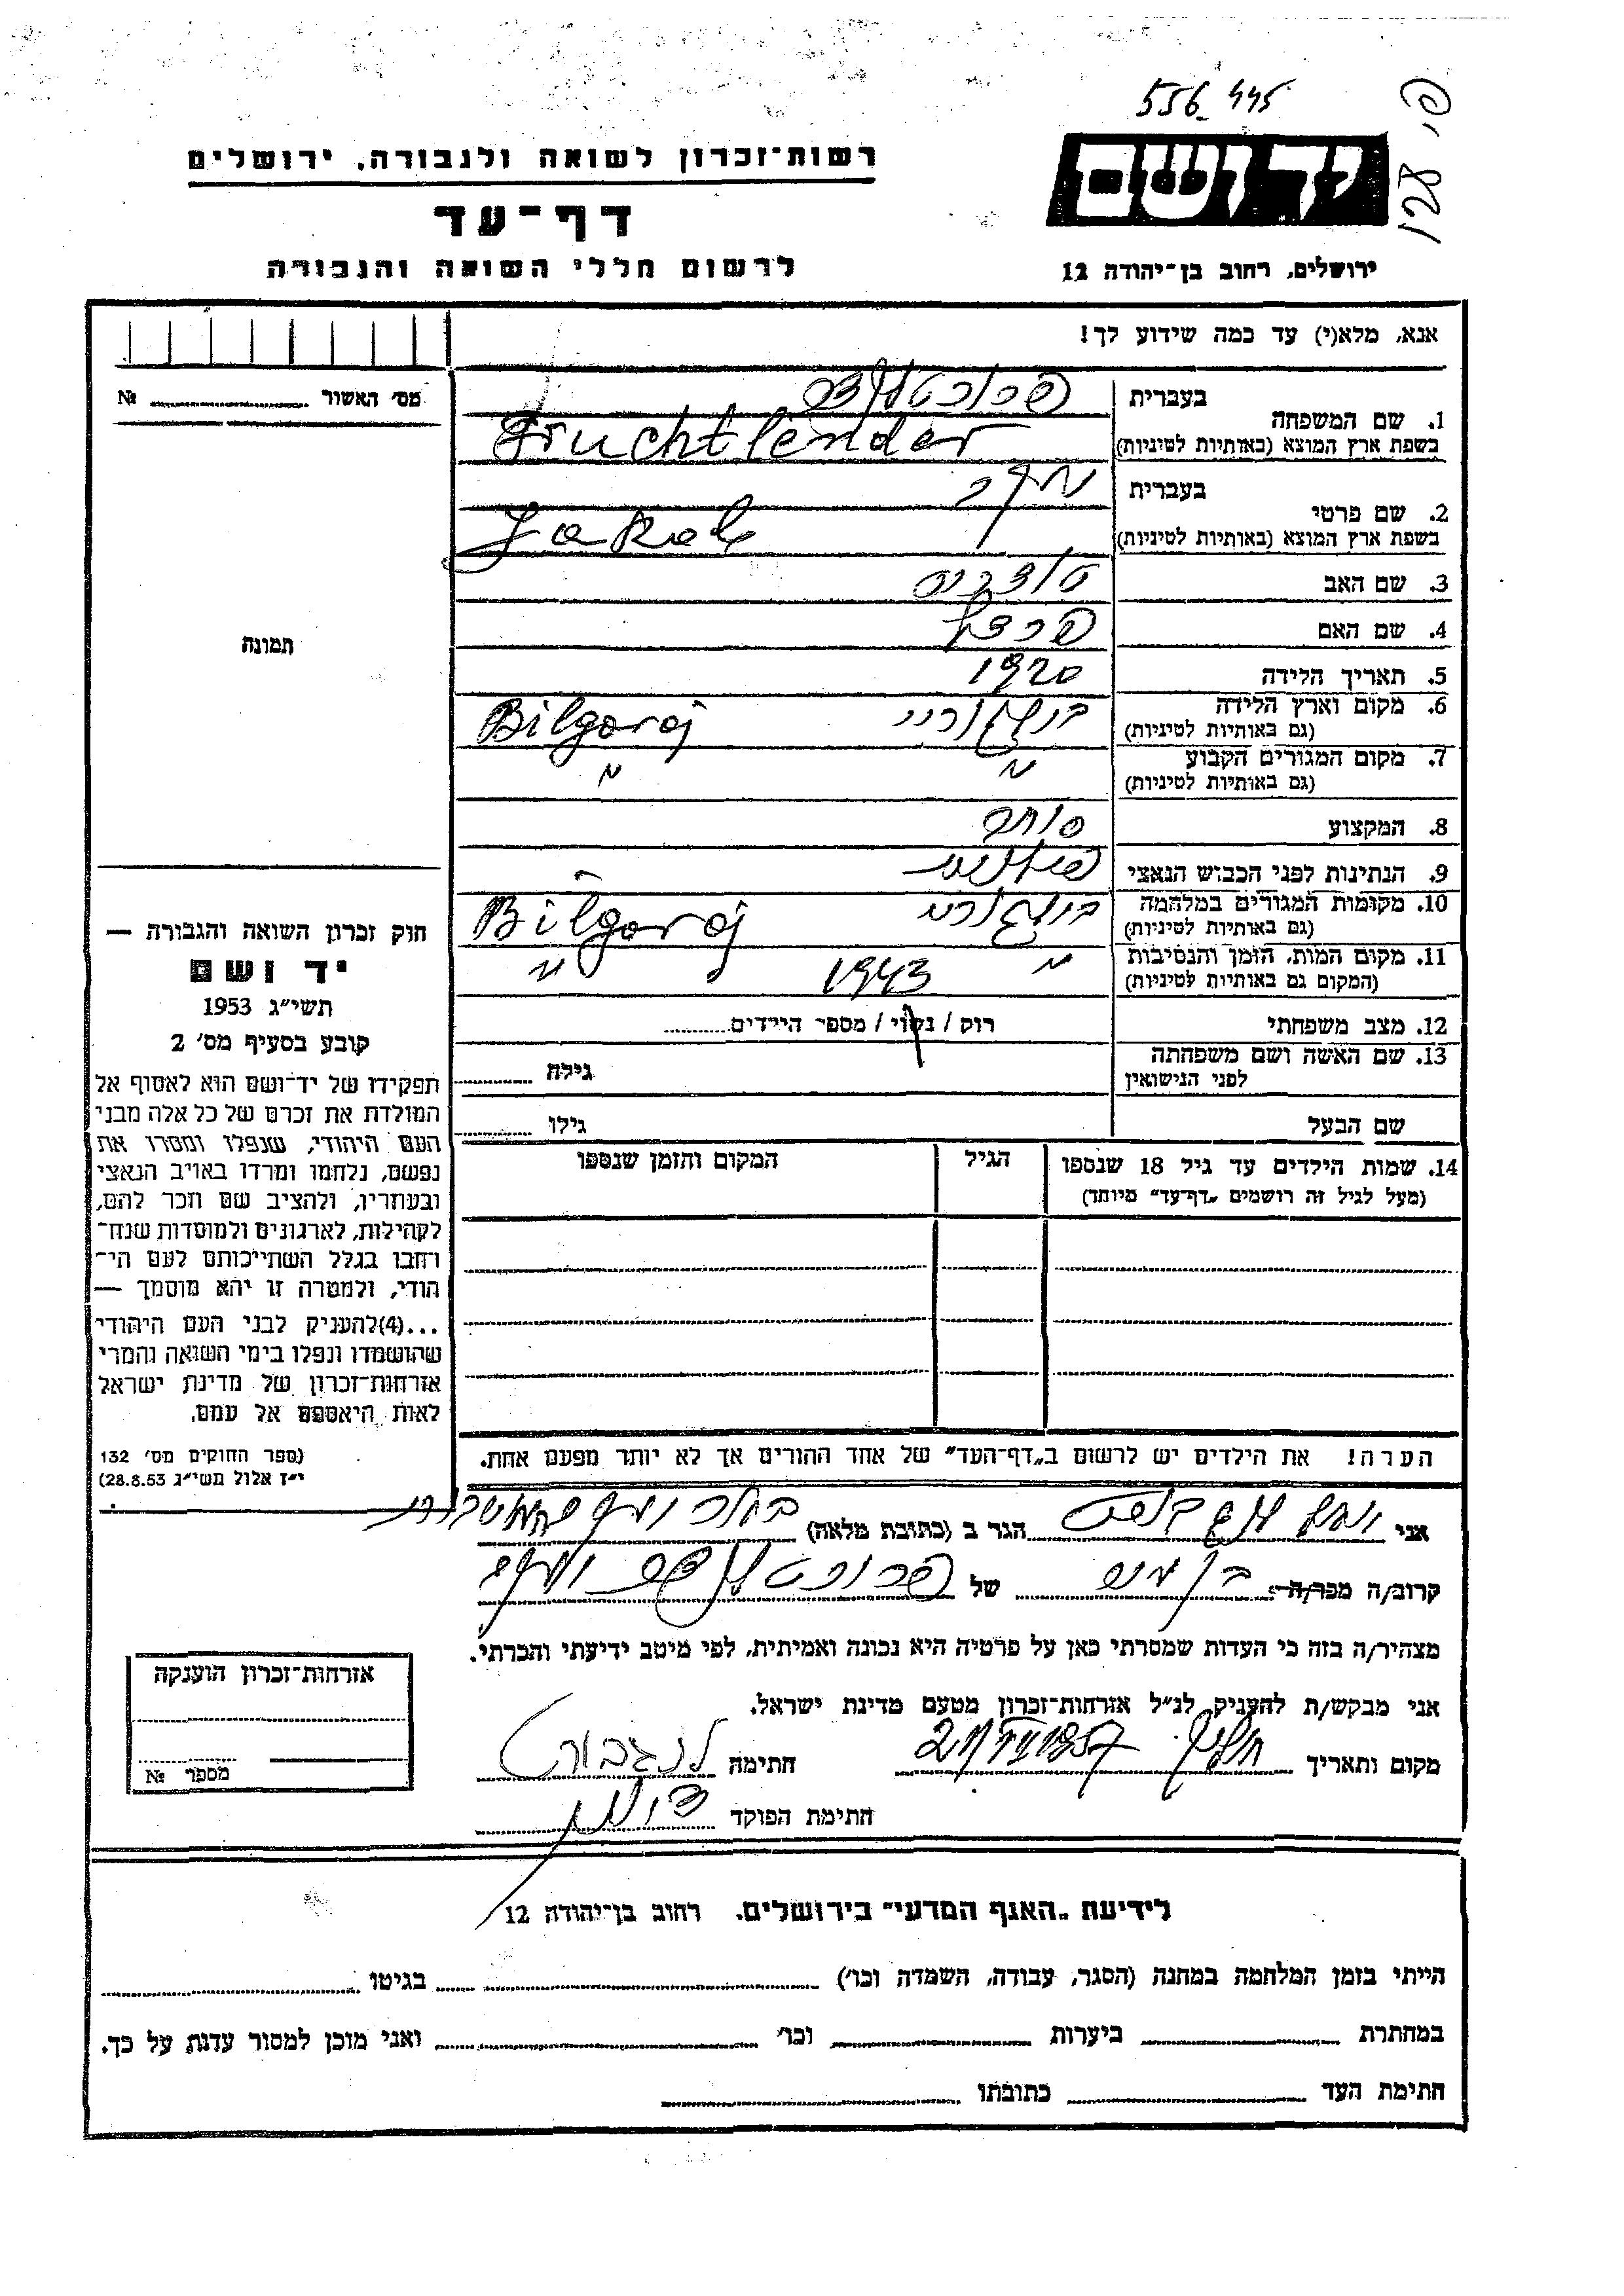 556_445
רשות־זכרון לשואה ולגבורה, ירושלים
יד ושם
דף־עד
לרשום חללי השואה והגבורה
ירושלים, רחוב בן־יהודה 12
אנא, מלא(י) עד כמה שידוע לך!
מס׳ האשור № 
בעברית
1. שם המשפחה
בשפת ארץ המוצא (באותיות לטיניות) Fruchtlender
בעברית יעקב
2. שם פרטי
בשפת ארץ המוצא (באותיות לטיניות) Jakob
3. שם האב
4. שם האם
תמונה
5. תאריך הלידה 1920
6. מקום וארץ הלידה בילגורי Bilgoraj
(גם באותיות לטיניות)
7. מקום המגורים הקבוע " "
(גם באותיות לטיניות)
8. המקצוע סוחר
9. הנתינות לפני הכבוש הנאצי פולנית
10. מקומות המגורים במלחמה בילגורי Bilgoraj
(גם באותיות לטיניות)
11. מקום המות, הזמן והנסיבות " 1943 "
(המקום גם באותיות לטיניות)
12. מצב משפחתי רוק / נשוי / מספר הילדים
13. שם האשה ושם משפחתה
לפני הנישואין גילה
שם הבעל גילו
14. שמות הילדים עד גיל 18 שנספו
(מעל לגיל זה רושמים „דף־עד״ מיוחד)
הגיל
המקום והזמן שנספו
חוק זכרון השואה והגבורה —
יד ושם
תשי״ג 1953
קובע בסעיף מס׳ 2
תפקידו של יד־ושם הוא לאסוף אל
המולדת את זכרם של כל אלה מבני
העם היהודי, שנפלו ומסרו את
נפשם, נלחמו ומרדו באויב הנאצי
ובעוזריו, ולהציב שם וזכר להם,
לקהילות, לארגונים ולמוסדות שנח־
רבו בגלל השתייכותם לעם הי־
הודי, ולמטרה זו יהא מוסמך —
...(4)להעניק לבני העם היהודי
שהושמדו ונפלו בימי השואה והמרי
אזרחות־זכרון של מדינת ישראל
לאות היאספם אל עמם.
(ספר החוקים מס׳ 132
י״ז אלול תשי״ג 28.8.53)
הערה! את הילדים יש לרשום ב„דף־העד״ של אחד ההורים אך לא יותר מפעם אחת.
אני הגר ב (כתובת מלאה)
קרוב/ה מכר/ה של
מצהיר/ה בזה כי העדות שמסרתי כאן על פרטיה היא נכונה ואמיתית, לפי מיטב ידיעתי והכרתי.
אני מבקש/ת להעניק לנ״ל אזרחות־זכרון מטעם מדינת ישראל.
מקום ותאריך חתימה
חתימת הפוקד
אזרחות־זכרון הוענקה
מספר №
לידיעת „האגף המדעי״ בירושלים. רחוב בן־יהודה 12
הייתי בזמן המלחמה במחנה (הסגר, עבודה, השמדה וכו׳) בגיטו
במחתרת ביערות וכו׳ ואני מוכן למסור עדות על כך.
חתימת העד כתובתו